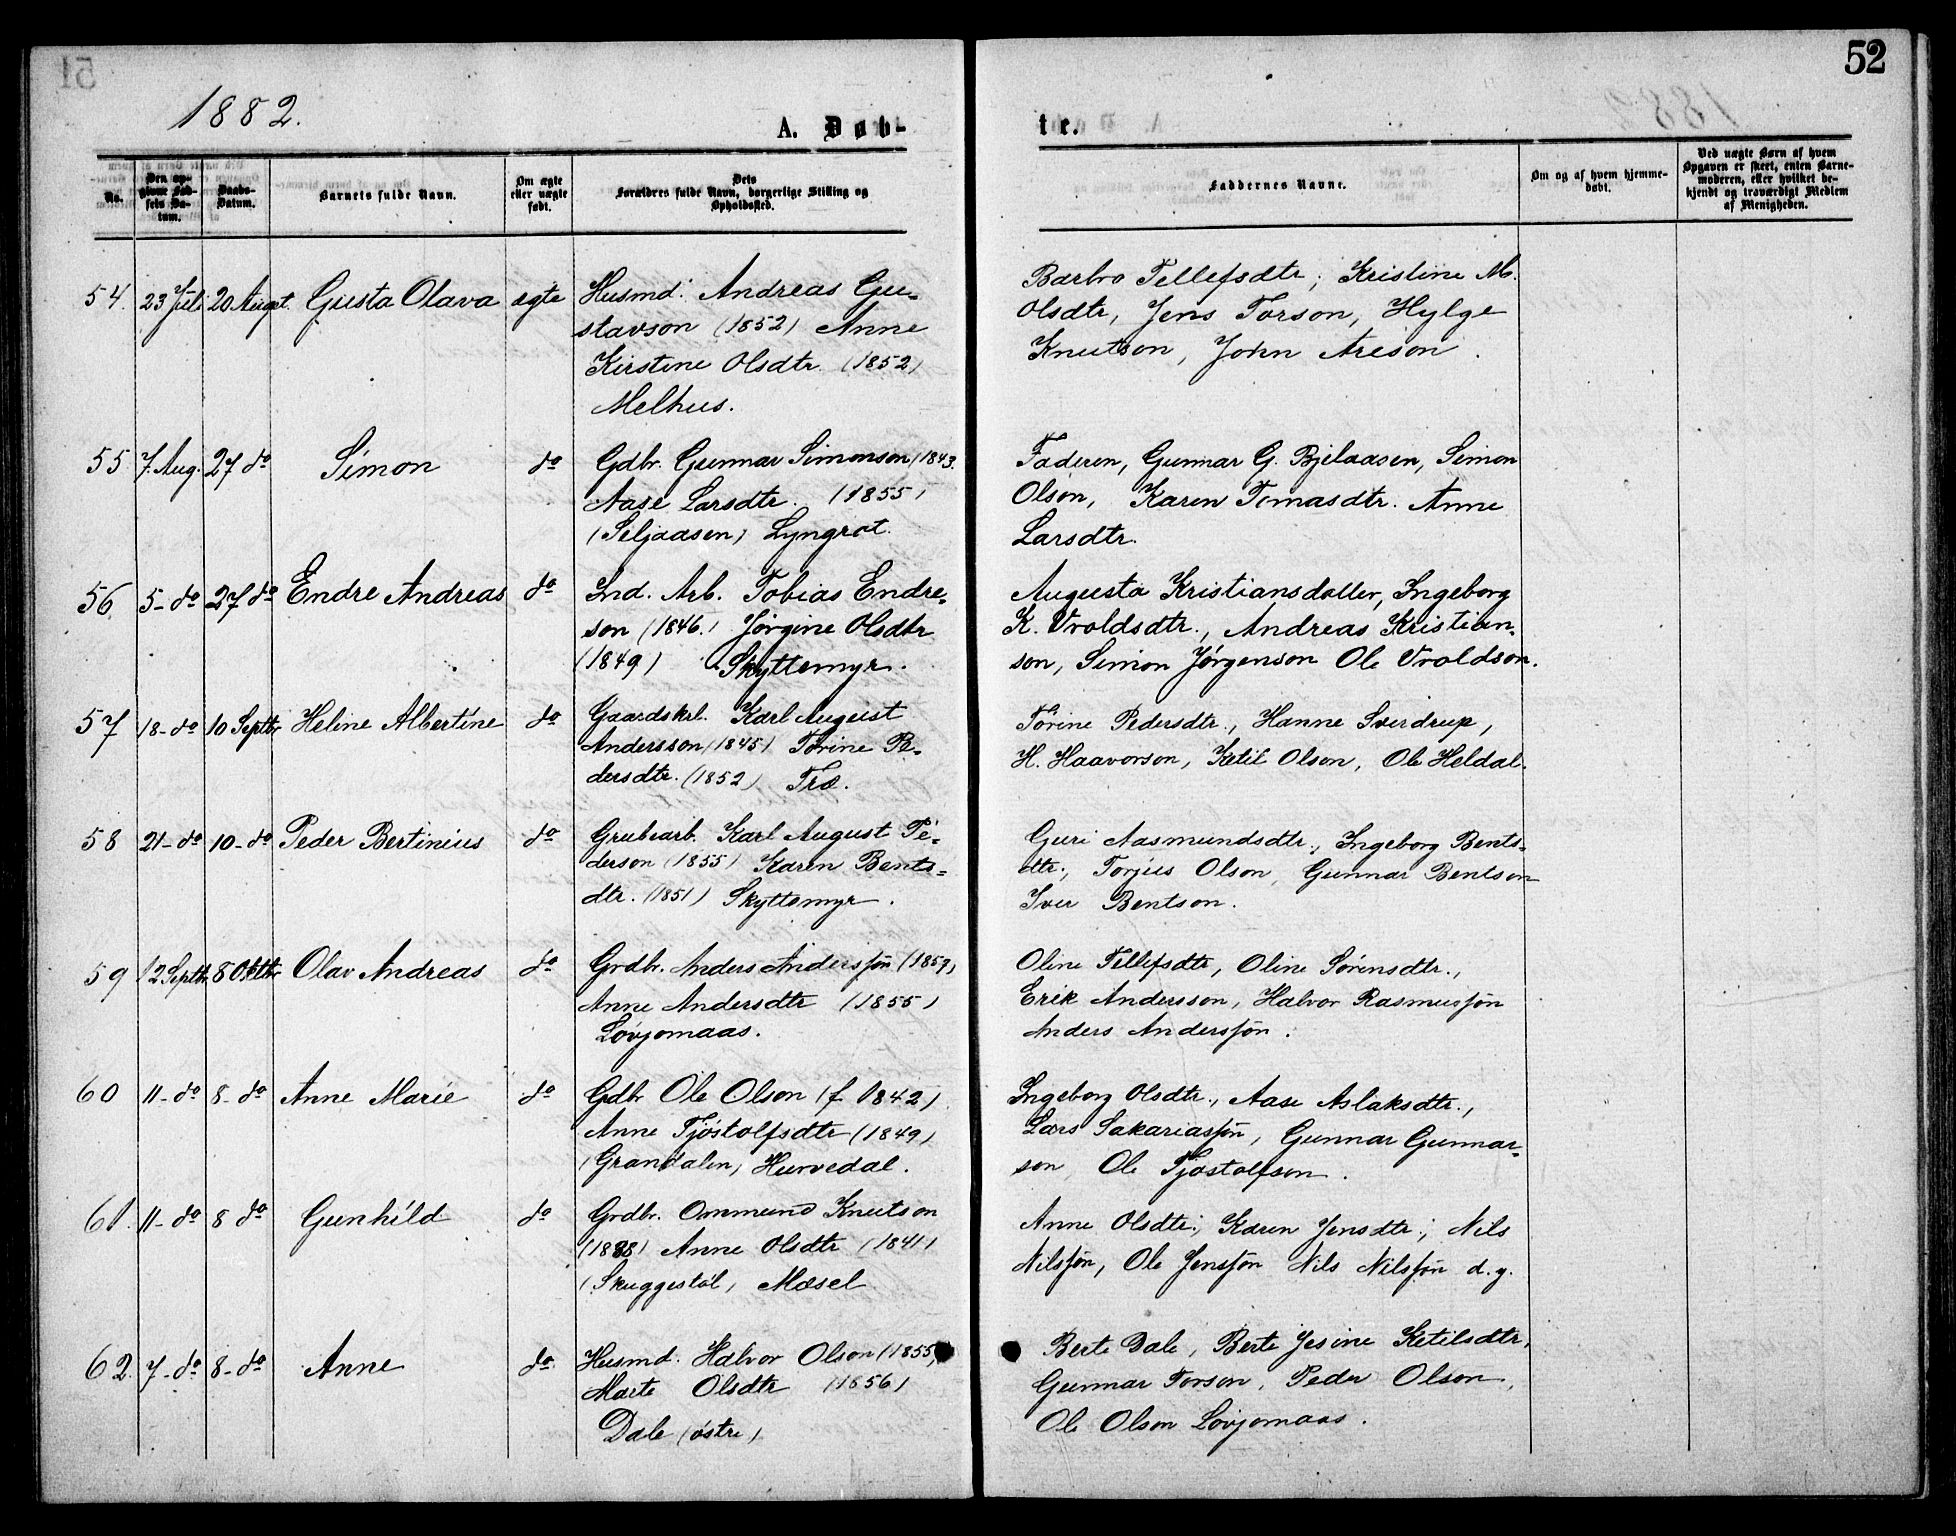 52
1882.
A. Døb-
te.
No.
Den op-
givne Fød-
sels Da-
tum.
Daabs-
Datum.
Barnets fulde Navn.
Om ægte
eller uægte
født.
Dets
Forældres fulde Navn, borgerlige Stilling og
Opholdssted.
Faddernes Navne.
Om og af hvem hjemme-
døbt.
Ved uægte Børn af hvem
Opgaven er skeet, enten Barne-
moderen, eller hvilket be-
kjendt og troværdigt Medlem
af Menigheden.
54. 23 Juli 20 August. Gusta Olava ægte Husmd. Andreas Gu-
stavson (1852) Anne
Kirstine Olsdtr. (1852)
Melhus.
Barbro Tellefsdtr, Kristine M.
Olsdtr, Jens Torson, Hylge
Knutson, John Areson.
55 7. Aug. 27 do Simon do Gdbr. Gunnar Simonson (1843.
Aase Larsdtr. (1855)
(Seljaasen) Lyngrot.
Faderen, Gunnar G. Bjelaasen, Simon
Olson, Karen Tomasdtr. Anne
Larsdtr.
56. 5- do 27 do Endre Andreas do Ind. Arb. Tobias Endre-
son (1846.) Jørgine Olsdtr
(1849) Skyttemyr.
Augusta Kristiansdatter, Ingeborg
K. Vroldsdtr., Andreas Kristian-
son, Simon Jørgenson Ole Vroldson.
57 18- do 10 Septbr Heline Albertine do Gaardskrl. Karl August
Andersson (1845) Torine Pe-
dersdtr. (1852) Træ.
Torine Pedersdtr., Hanne Sverdrup,
H. Haavorson, Ketil Olson, Ole Heldal.
58 21- do 10- do Peder Bertinius do Grubearb. Karl August Pe-
derson (1855) Karen Bents-
dtr. (1851) Skyttemyr.
Guri Aasmundsdtr., Ingeborg Bents-
dtr., Torjus Olson, Gunnar Bentson
Iver Bentson.
59 12 Septbr. 8 Oktbr Olav Andreas do Grdbr. Anders Andersson (1859)
Anne Andersdtr (1855)
Løvjomaas.
Oline Tellefsdtr, Oline Sørensdtr.,
Erik Andersson, Halvor Rasmusson
Anders Andersson.
60 11- do 8- do Anne Marie do Gdbr Ole Olson (f 1842)
Anne Tjøstolfsdtr (1849)
(Grandalen) Hurvedal.
Ingeborg Olsdtr., Aase Aslaksdtr.,
Lars Sakariasson, Gunnar Gunnar-
son, Ole Tjøstolfson.
61. 11- do 8 do Gunhild do Grdbr. Ommund Knutson
(1838) Anne Olsdtr (1841)
(Skuggestøl) Mæsel
Anne Olsdtr., Karen Jensdtr., Nils
Nilsson, Ole Jensson Nils Nilsson d.y.
62. 7- do 8- do Anne do. Husmd. Halvor Olson (1855)
Marte Olsdtr (1856)
Dale (østre)
Berte Dale, Berte Jesine Ketilsdtr,
Gunnar Torson, Peder Olson,
Ole Olson Løvjomaas.